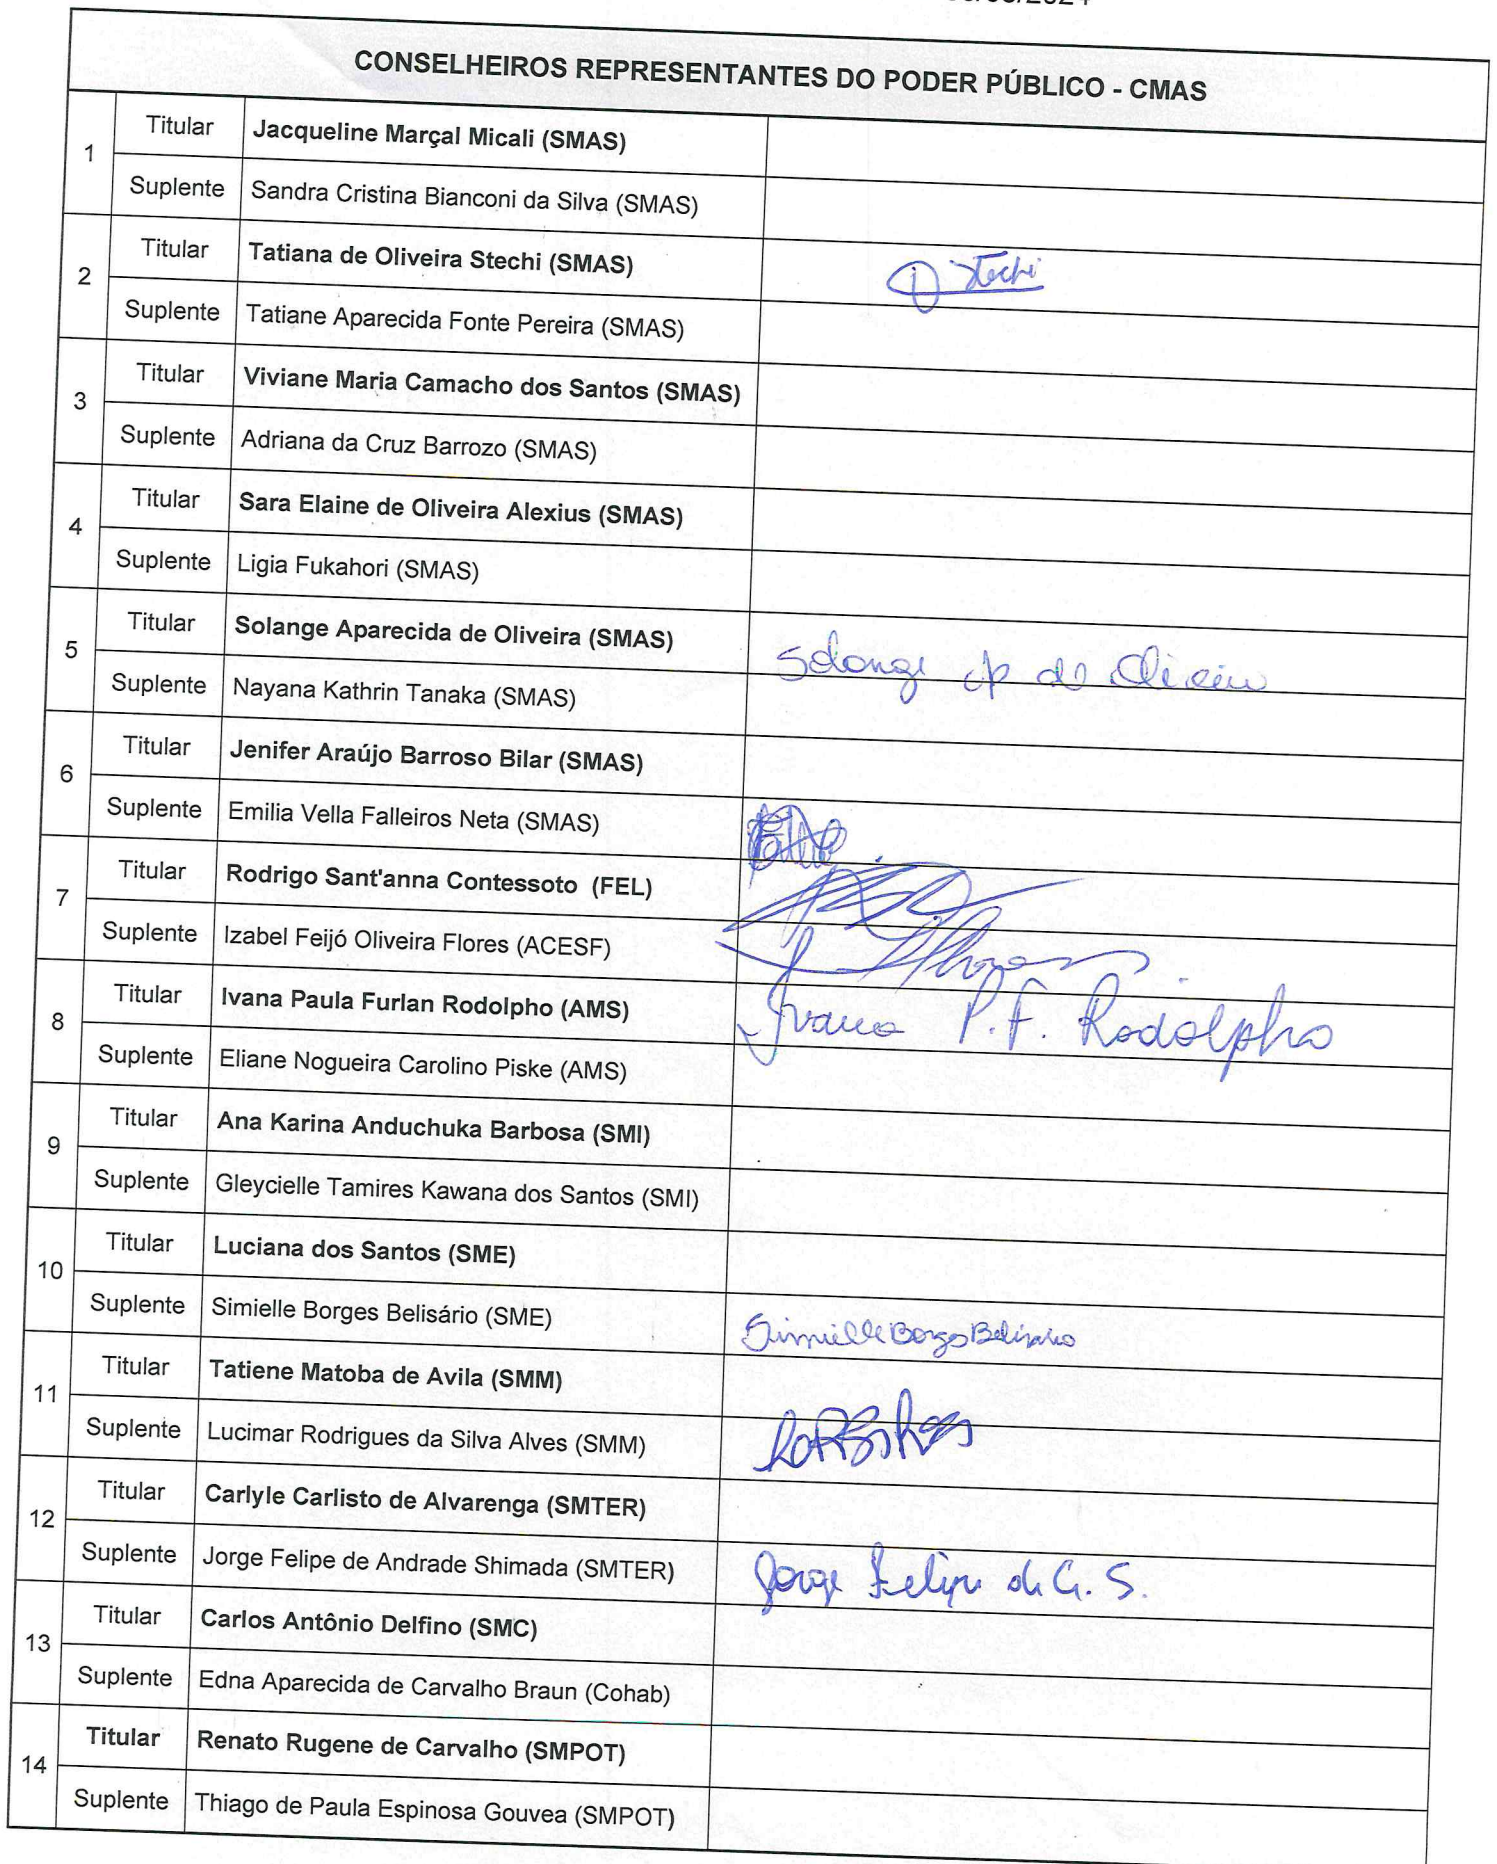 CONSELHEIROS REPRESENTANTES DO PODER PÚBLICO - CMAS
1
Titular Jacqueline Marçal Micali (SMAS)
Suplente Sandra Cristina Bianconi da Silva (SMAS)
2
Titular Tatiana de Oliveira Stechi (SMAS) Stechi
Suplente Tatiane Aparecida Fonte Pereira (SMAS)
3
Titular Viviane Maria Camacho dos Santos (SMAS)
Suplente Adriana da Cruz Barrozo (SMAS)
4
Titular Sara Elaine de Oliveira Alexius (SMAS)
Suplente Ligia Fukahori (SMAS)
5
Titular Solange Aparecida de Oliveira (SMAS) Solange Ap de Oliveira
Suplente Nayana Kathrin Tanaka (SMAS)
6
Titular Jenifer Araújo Barroso Bilar (SMAS)
Suplente Emilia Vella Falleiros Neta (SMAS)
7
Titular Rodrigo Sant'anna Contessoto (FEL)
Suplente Izabel Feijó Oliveira Flores (ACESF)
8
Titular Ivana Paula Furlan Rodolpho (AMS) Ivana P. F. Rodolpho
Suplente Eliane Nogueira Carolino Piske (AMS)
9
Titular Ana Karina Anduchuka Barbosa (SMI)
Suplente Gleycielle Tamires Kawana dos Santos (SMI)
10
Titular Luciana dos Santos (SME)
Suplente Simielle Borges Belisário (SME) Simielle Borges Belisário
11
Titular Tatiene Matoba de Avila (SMM)
Suplente Lucimar Rodrigues da Silva Alves (SMM)
12
Titular Carlyle Carlisto de Alvarenga (SMTER)
Suplente Jorge Felipe de Andrade Shimada (SMTER) Jorge Felipe de A. S.
13
Titular Carlos Antônio Delfino (SMC)
Suplente Edna Aparecida de Carvalho Braun (Cohab)
14
Titular Renato Rugene de Carvalho (SMPOT)
Suplente Thiago de Paula Espinosa Gouvea (SMPOT)